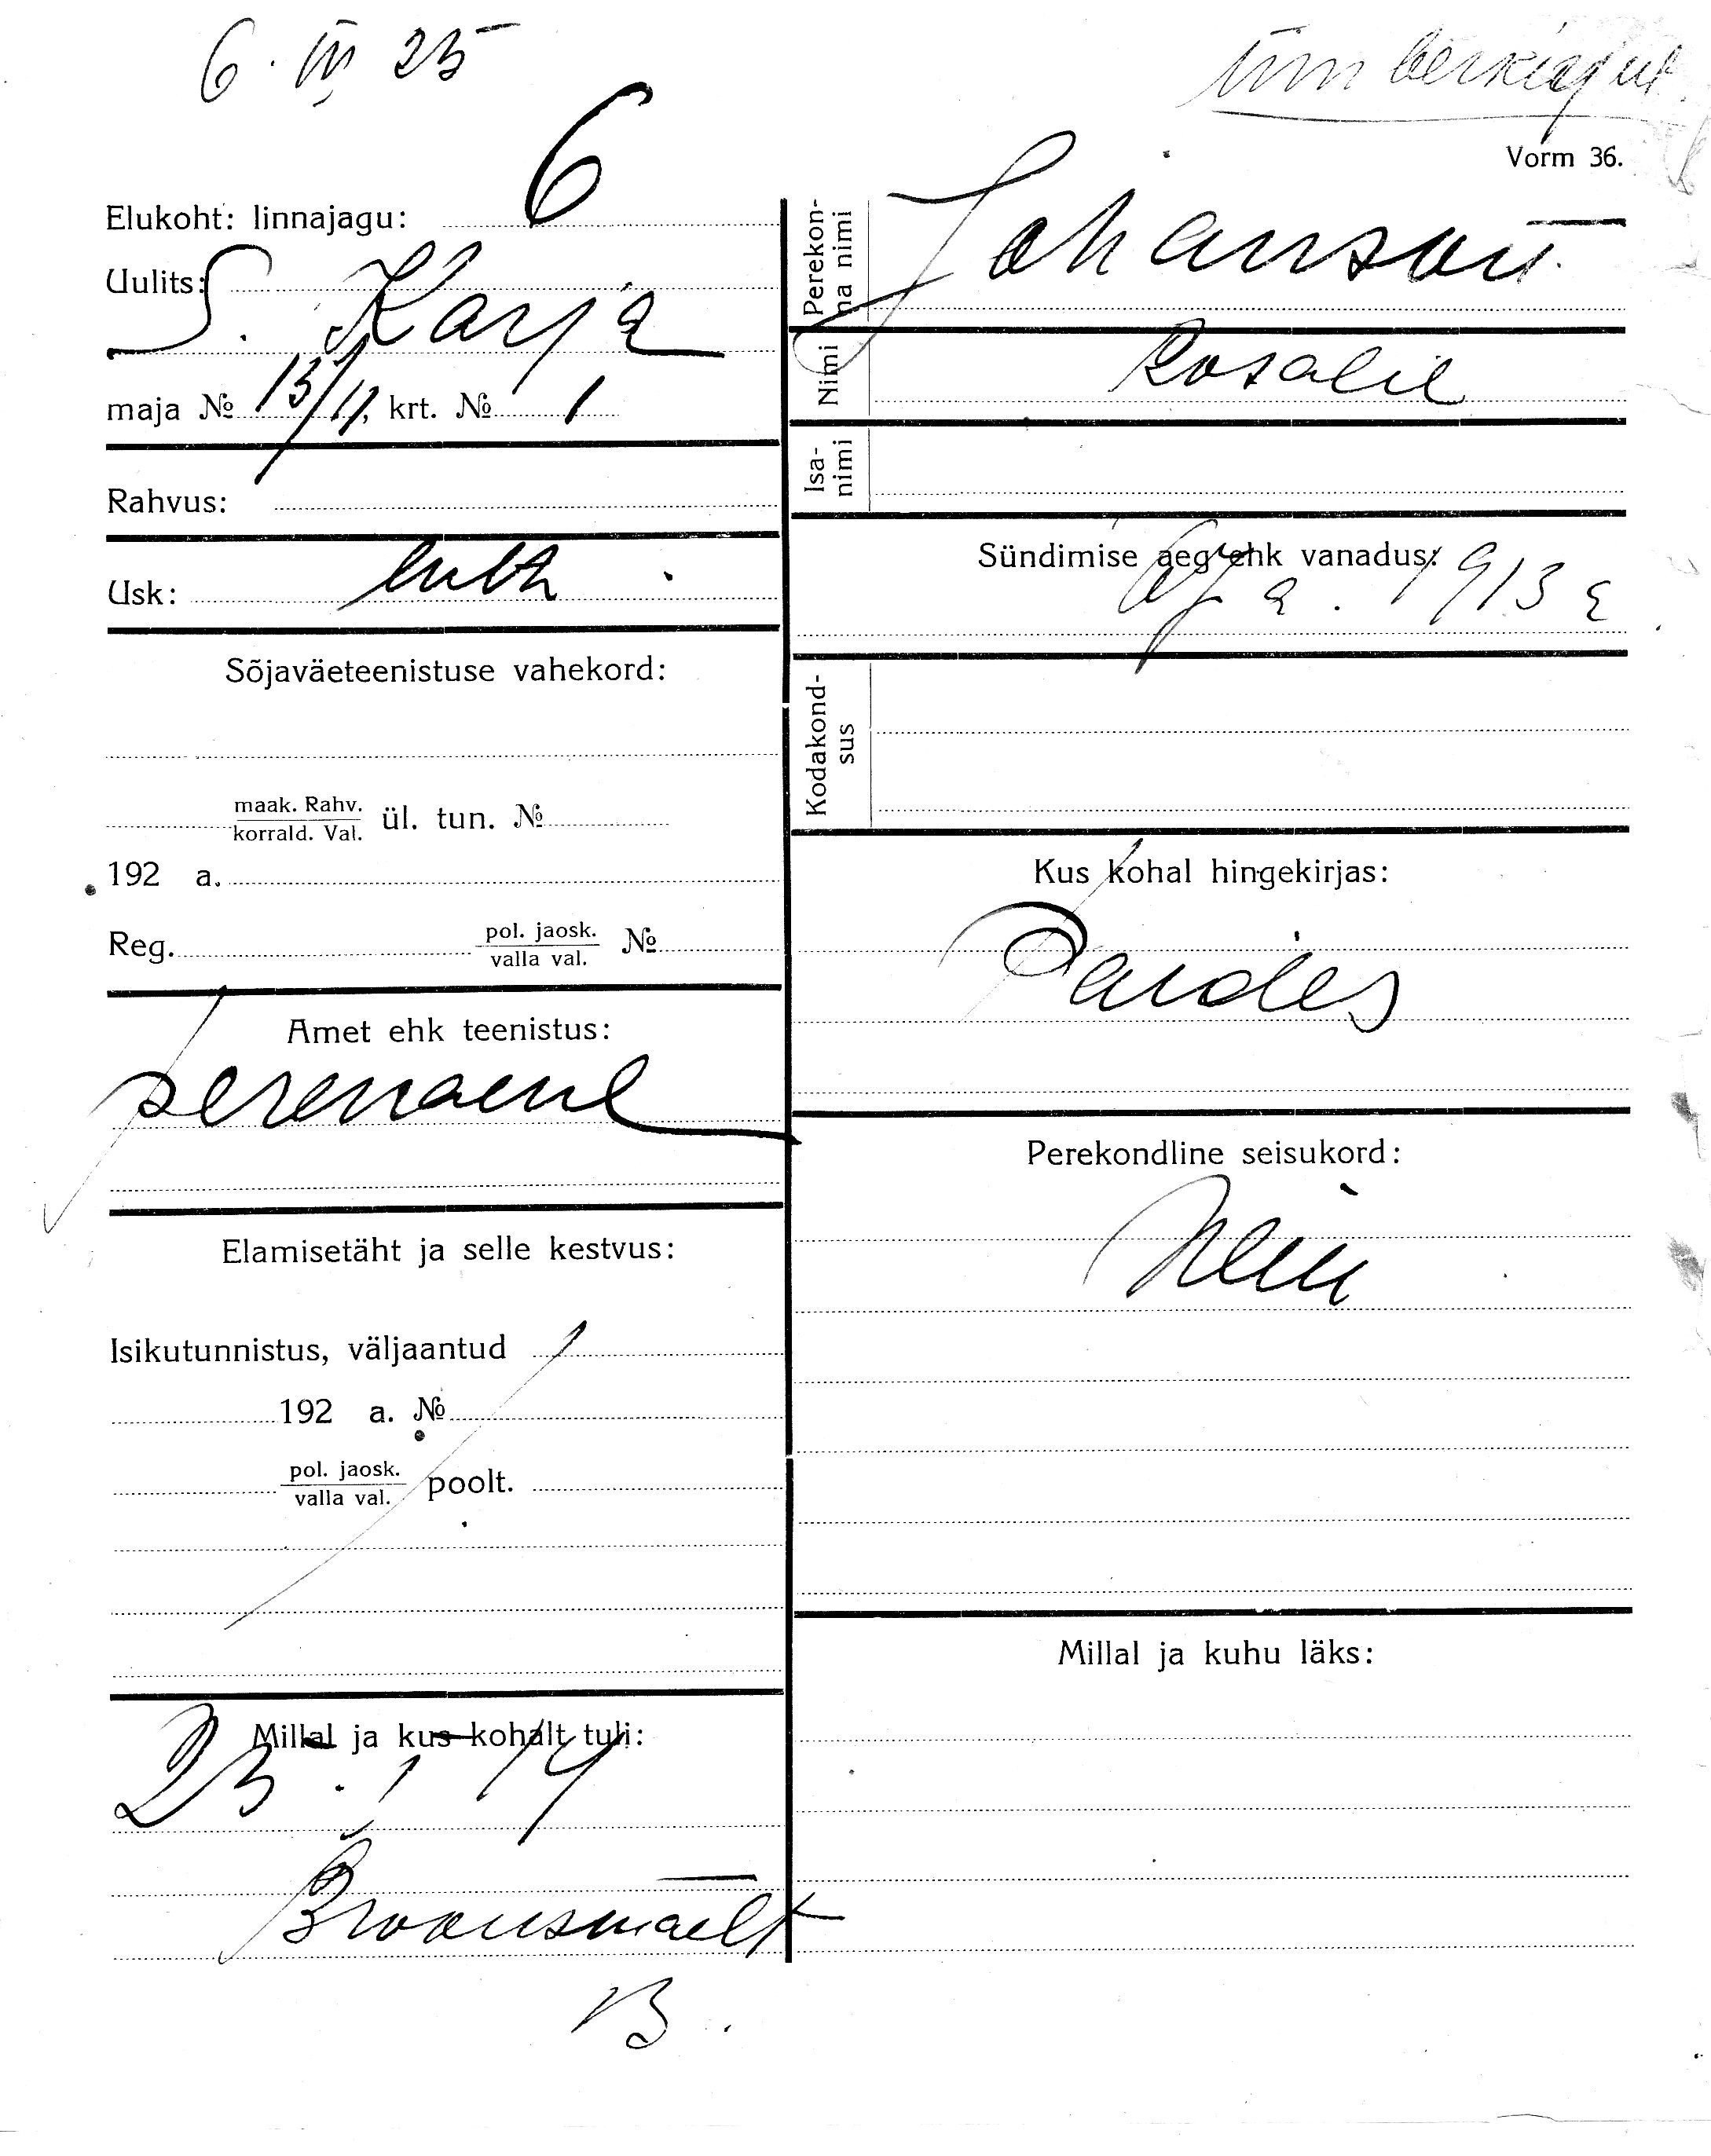 6. III 25
ümberkirjut.
Vorm 36.
Elukoht: linnajagu: 6
Uulits: S. Karja
maja № 13/11, krt. № 1
Rahvus:
Usk: luth.
Sõjaväeteenistuse vahekord:
maak. Rahv.
korrald. Val. ül. tun. №
192 a.
Reg. pol. jaosk.
valla val. №
Amet ehk teenistus:
perenaene
Elamisetäht ja selle kestvus:
Isikutunnistus, väljaantud
192 a. №
pol. jaosk.
valla val. poolt.
Millal ja kus kohalt tuli:
23. 1 14
Perekon-
na nimi Johanson
Nimi Rosalie
Isa-
nimi
Sündimise aeg ehk vanadus:
a. 1913 a
Kodakond-
sus
Kus kohal hingekirjas:
Paides
Perekondline seisukord:
Millal ja kuhu läks: